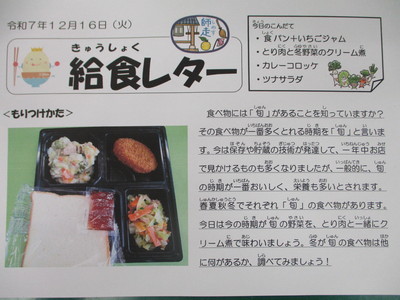 令和7年12月16日（火）
きゅうしょく
給食レター
師走
今日のこんだて
・食パン+いちごジャム
・とり肉と冬野菜のクリーム煮
・カレーコロッケ
・ツナサラダ
＜もりつけかた＞
食べ物には「旬」があることを知っていますか？
その食べ物が一番多くとれる時期を「旬」と言います。今は保存や貯蔵の技術が発達して、一年中お店
で見かけるものも多くなりましたが、一般的に、旬
の時期が一番おいしく、栄養も多いとされます。
春夏秋冬でそれぞれ「旬」の食べ物があります。
今日は今の時期が旬の野菜を、とり肉と一緒にク
リーム煮で味わいましょう。冬が旬の食べ物は他
に何があるか、調べてみましょう！